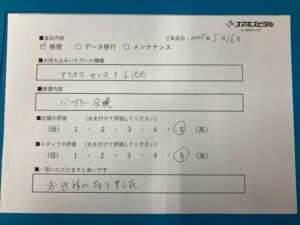 スマホスピタル
■来店内容
ご来店日：2025年5月16日
☑ 修理 □ データ移行 □ メンテナンス
■お持ち込みいただいた機種
アクオス センス 3 Lite
■修理内容
バッテリー交換
■店舗の評価 (丸を付けて評価してください)
(低) 1 ・ 2 ・ 3 ・ 4 ・ 5 (高)
■スタッフの評価 (丸を付けて評価してください)
(低) 1 ・ 2 ・ 3 ・ 4 ・ 5 (高)
■一言いただけますと幸いです
お世話になりました。